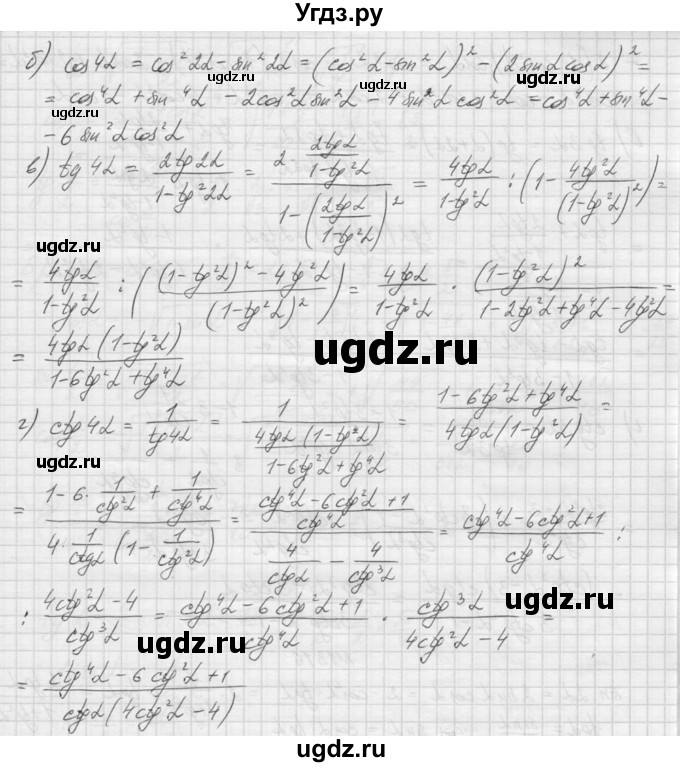 Угдз.ру
б) cos4α = cos²2α - sin²2α = (cos²α - sin²α)² - (2sinα cosα)² =
= cos⁴α + sin⁴α - 2cos²α sin²α - 4sin²α cos²α = cos⁴α + sin⁴α -
- 6sin²α cos²α
ugdz.ru ugdz.ru
в) tg4α = 2tg2α/(1-tg²2α) = (2 · 2tgα/(1-tg²α))/(1-(2tgα/(1-tg²α))²) = 4tgα/(1-tg²α) : (1 - 4tg²α/(1-tg²α)²) =
ugdz.ru ugdz.ru
= 4tgα/(1-tg²α) : (((1-tg²α)² - 4tg²α)/(1-tg²α)²) = 4tgα/(1-tg²α) · (1-tg²α)²/(1-2tg²α+tg⁴α-4tg²α) =
= 4tgα(1-tg²α)/(1-6tg²α+tg⁴α)
ugdz.ru
г) ctg4α = 1/tg4α = 1/(4tgα(1-tg²α)/(1-6tg²α+tg⁴α)) = (1-6tg²α+tg⁴α)/(4tgα(1-tg²α)) =
ugdz.ru ugdz.ru
= (1-6·1/ctg²α + 1/ctg⁴α)/(4·1/ctgα(1-1/ctg²α)) = ((ctg⁴α-6ctg²α+1)/ctg⁴α)/(4/ctgα - 4/ctg³α) = (ctg⁴α-6ctg²α+1)/ctg⁴α :
ugdz.ru
: (4ctg²α-4)/ctg³α = (ctg⁴α-6ctg²α+1)/ctg⁴α · ctg³α/(4ctg²α-4) =
ugdz.ru ugdz.ru
= (ctg⁴α-6ctg²α+1)/(ctgα(4ctg²α-4))
ugdz.ru